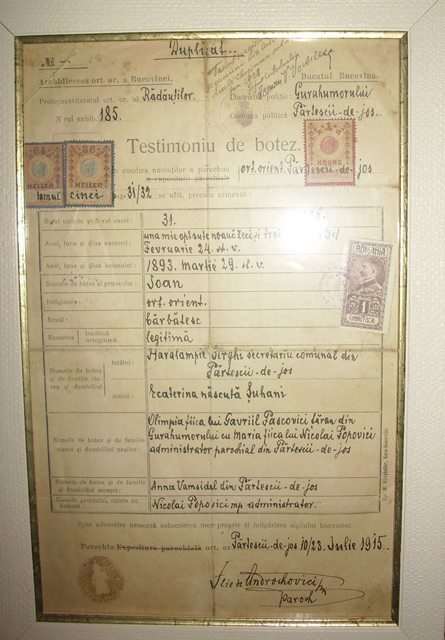 Duplicat.
No.
Archidiecesa ort. or. a Bucovinei.
Ducatul Bucovina.
Protopresviteratul ort. or. al Rădăuților.
Districtul politic: Gurahumorului
N-rul exhib. 185.
Comuna politică: Pârtescii-de-jos.
Testimoniu de botez.
84. 88.
HELLER HELLER
1 KRONE
condica născuților a parochiei ort. orient. Pârtescii-de-jos
tomul cinci pag. 31/32 se află, precum urmează:
31.
Anul, luna și ziua nascerii: una mie optsute nouăzeci și trei
Fevruarie 24. st. v.
Anul, luna și ziua botezului: 1893. Martie 29. st. v.
Numele de botez al pruncului: Ioan
Religiunea: ort. orient.
Sexul: bărbătesc
Nascerea: legitimă nelegitimă legitimă
ROMANIA
1
Numele de botez și de familie
tatălui: Haralampie Sîrghi secretariu comunal din
Pârtescii-de-jos
mamei: Ecaterina născută Juhani
Numele de botez și de familie
Olimpia fiica lui Gavriil Pascovici țăran din
Gurahumorului cu Maria fiica lui Nicolai Popovici
administrator parochial din Pârtescii-de-jos
Numele de botez și de familie și domiciliul moașei: Anna Vamsidel din Pârtescii-de-jos
Numele preotului, carele au botezat: Nicolai Popovici mp administrator.
Spre adeverire urmează subscrierea mea proprie și întipărirea sigilului bisericesc.
Parochia Expozitura parochială ort. or. Pârtescii-de-jos 10/23. Iulie 1915.
Ilie de Androchovici
paroch